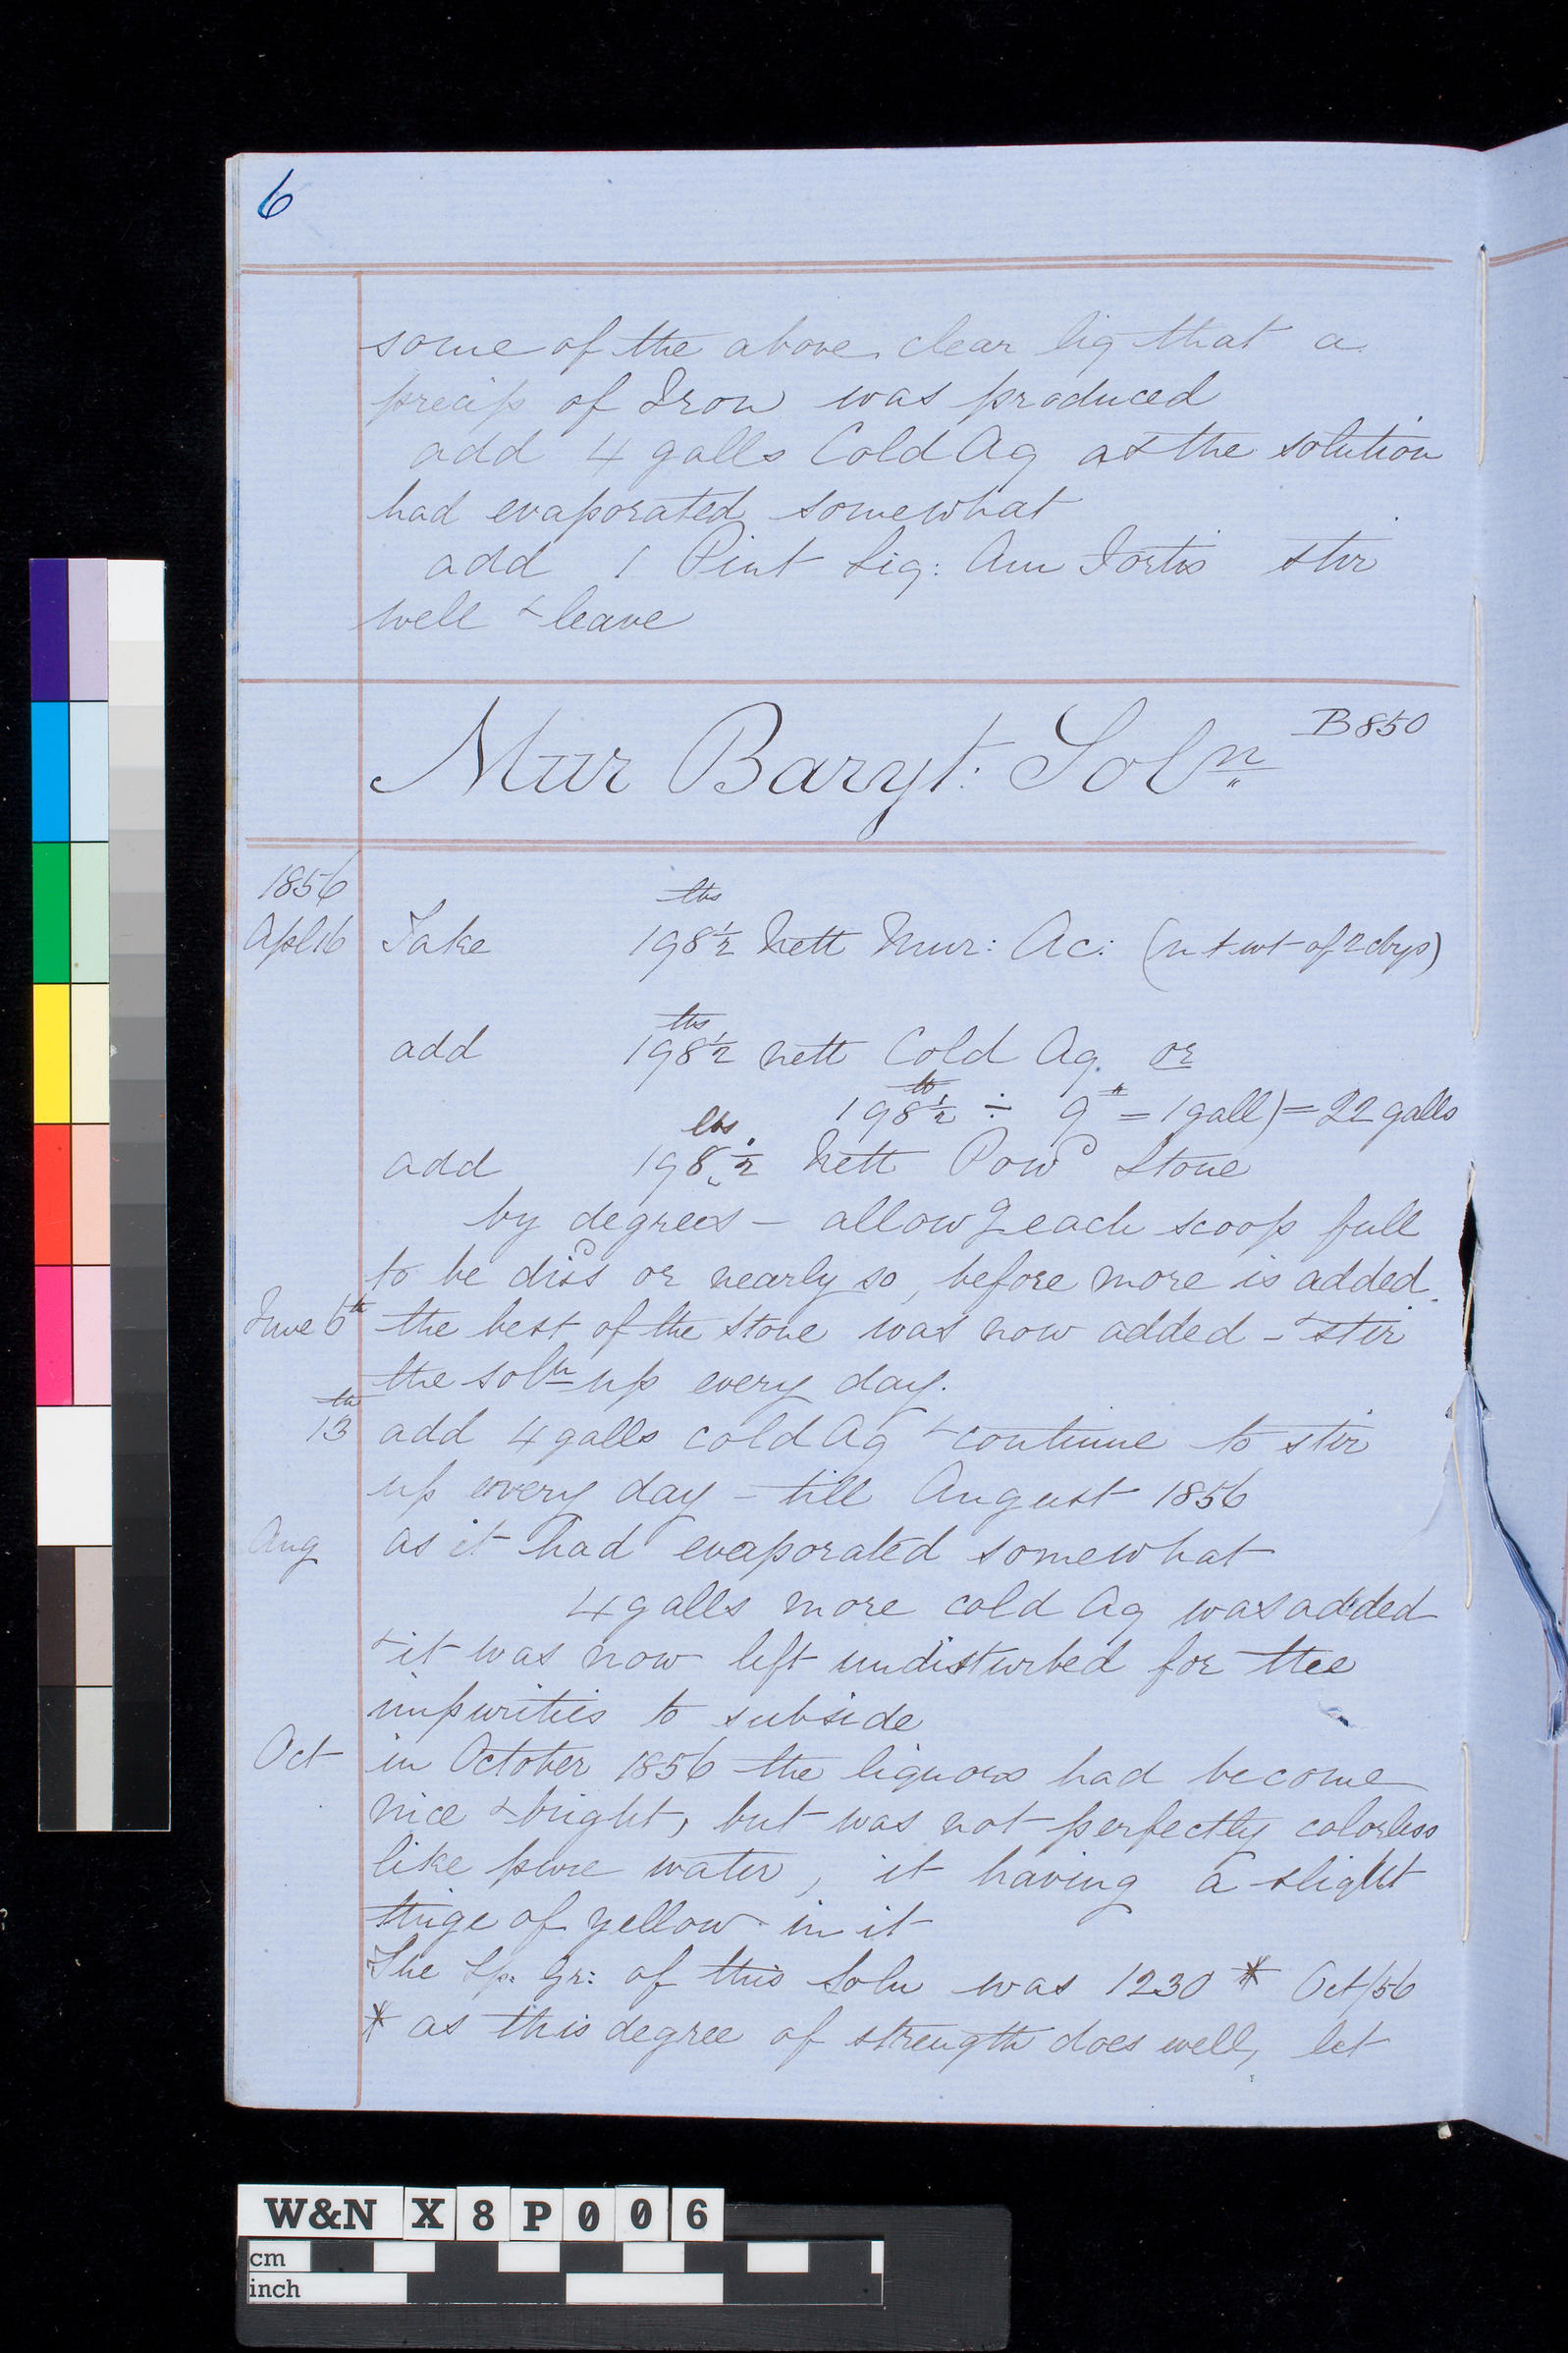 6
some of the above clear liq that a
precip of Iron was produced
add 4 galls Cold Aq as the solution
had evaporated somewhat
add 1 Pint Liq: Am Fortis stir
well & leave
Mur Baryt: Soln B850
1856
Apl 16 Take 198½ lbs Nett Mur: Ac: (nt wt of 2 cbys)
add 198½ lbs nett Cold Aq. or
198½ lb ÷ 9 lb = 1 gall) = 22 galls
add 198½ lbs Nett Powd Stone
by degrees – allow g each scoop full
to be dissd or nearly so, before more is added.
June 6th the best of the stone was now added – & stir
the soln up every day.
13th add 4 galls cold Aq & continue to stir
up every day – till August 1856
Aug as it had evaporated somewhat
4 galls more cold Aq was added
& it was now left undisturbed for the
impurities to subside
Oct in October 1856 the liquors had become
nice & bright, but was not perfectly colorless
like pure water, it having a slight
tinge of yellow in it
The Sp. Gr: of this Soln was 1230 * Oct/56
* as this degree of strength does well, let
W&N X8P006
cm
inch